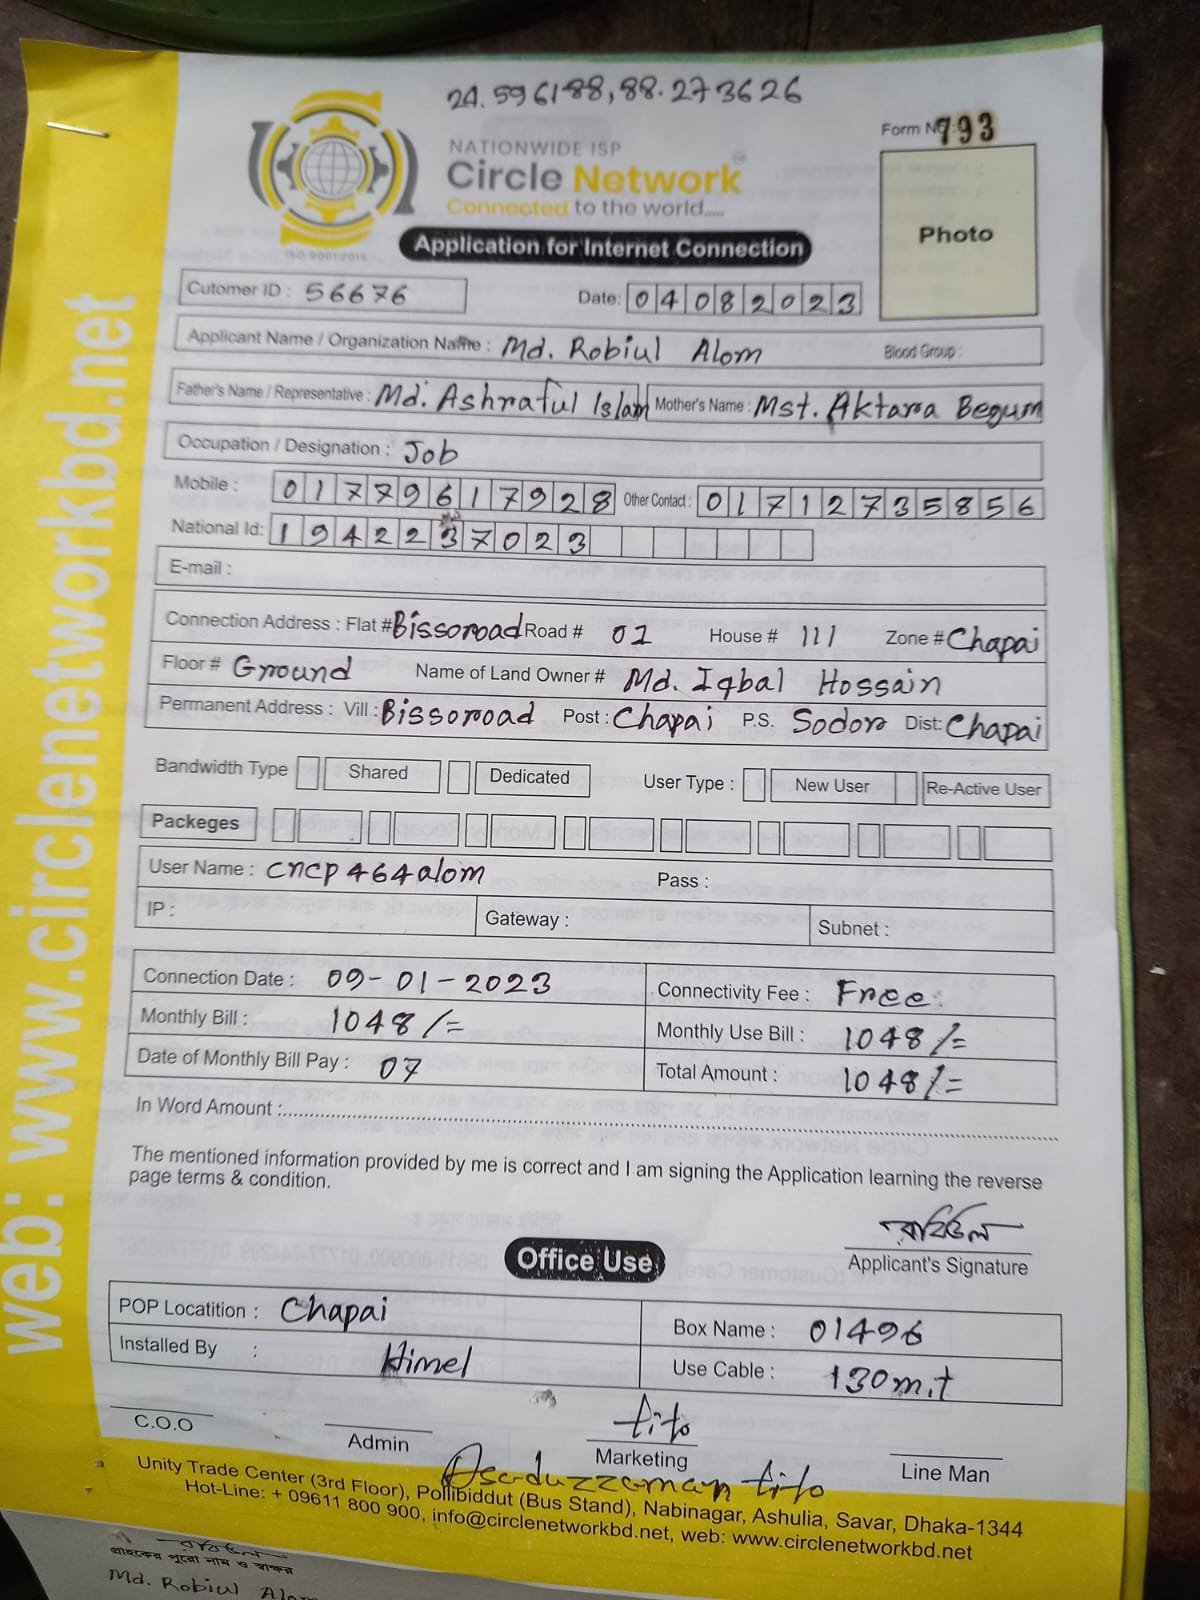 24.596188,88.273626
Form No: 793
NATIONWIDE ISP
Circle Network
Connected to the world.....
ISO 9001:2015
Application for Internet Connection
Photo
Cutomer ID : 56676 Date: 04082023
Applicant Name / Organization Name : Md. Robiul Alom Blood Group :
Father's Name / Representative : Md. Ashraful Islam Mother's Name : Mst. Aktara Begum
Occupation / Designation : Job
Mobile : 01779617928 Other Contact : 01712735856
National Id: 1942237023
E-mail :
Connection Address : Flat # Bissoroad Road # 01 House # 111 Zone # Chapai
Floor # Ground Name of Land Owner # Md. Iqbal Hossain
Permanent Address : Vill : Bissoroad Post : Chapai P.S. Sodor Dist: Chapai
Bandwidth Type Shared Dedicated User Type : New User Re-Active User
Packeges
User Name : cncp464alom Pass :
IP : Gateway : Subnet :
Connection Date : 09-01-2023 Connectivity Fee : Free
Monthly Bill : 1048/= Monthly Use Bill : 1048/=
Date of Monthly Bill Pay : 07 Total Amount : 1048/=
In Word Amount :
The mentioned information provided by me is correct and I am signing the Application learning the reverse
page terms & condition.
রবিউল
Applicant's Signature
Office Use
POP Locatition : Chapai Box Name : 01496
Installed By : Himel Use Cable : 130m.t
tito
C.O.O Admin Marketing Line Man
Asaduzzaman tito
Unity Trade Center (3rd Floor), Pollibiddut (Bus Stand), Nabinagar, Ashulia, Savar, Dhaka-1344
Hot-Line: + 09611 800 900, info@circlenetworkbd.net, web: www.circlenetworkbd.net
web: www.circlenetworkbd.net
রবিউল
গ্রাহকের পুরো নাম ও স্বাক্ষর
Md. Robiul Alom